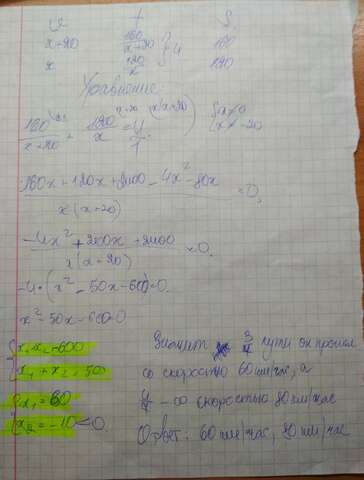 v t S
x+20 160/(x+20) } 4 160
x 120/x 120
Уравнение
160/(x+20) + 120/x = 4/1 {x≠0 x≠-20
160x+120x+2400-4x²-80x / x(x+20) = 0,
-4x²+200x+2400 / x(x+20) = 0.
-4·(x²-50x-600)=0.
x²-50x-600=0
{x₁x₂=-600
x₁+x₂=50
x₁=60
x₂=-10<0.
Значит 3/4 пути он прошел
со скоростью 60 км/час, а
- со скоростью 80 км/час
Ответ: 60 км/час, 80 км/час